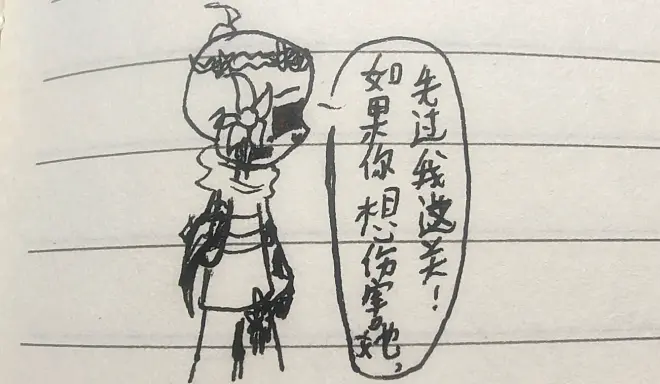 如果你想伤害她,
先过我这关!